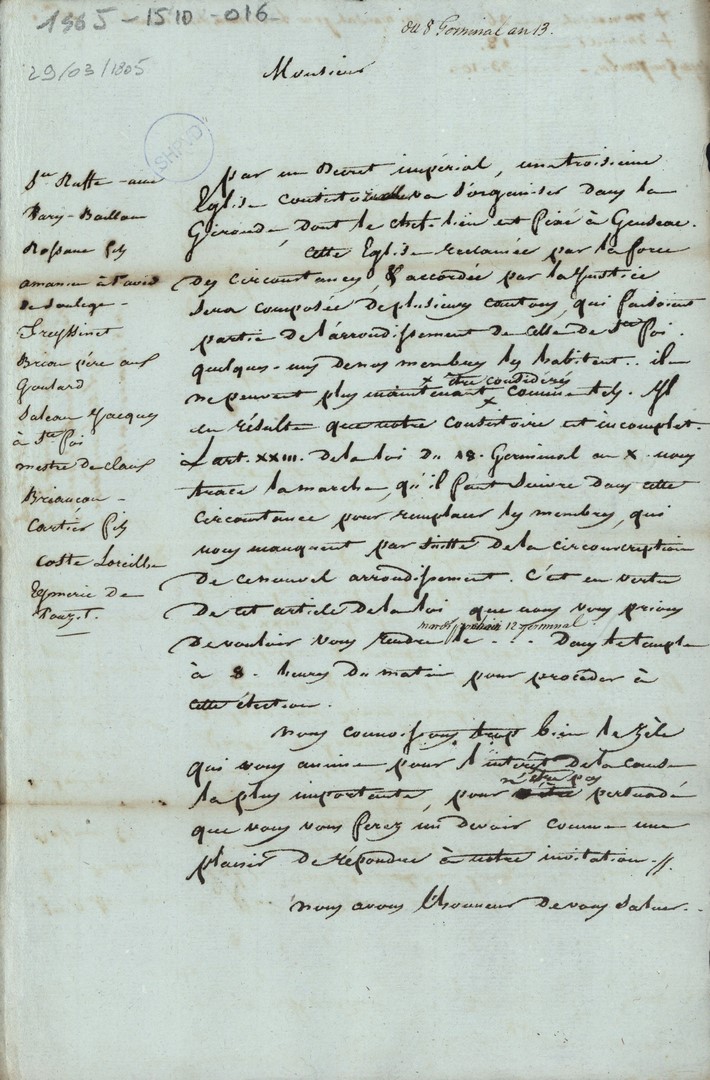 1805-1510-016
du 8 Germinal an 13.
29/03/1805
Monsieur
SHPVD
par un Decret impérial, une troisieme
Eglise consistoriale va s'organiser dans la
Gironde, dont le chef-lieu est fixé à Gensac.
Cette Eglise reclamée par la force
des circonstances, & accordée par la Justice
sera composée de plusieurs cantons, qui faisoient
partie de l'arrondissement de celle de Ste foi.
quelques-uns de nos membres les habitent.. il
ne peuvent plus maintenant être considérés comme tels. Il
en résulte que notre Consistoire est incomplet.
L'art. XXIII. de la loi du 18. Germinal an X. nous
trace la marche, qu'il faut suivre dans cette
circonstance pour remplacer les membres, qui
nous manquent par suitte de la circonscription
de ce nouvel arrondissement. C'est en vertu
de cet article de la loi que nous vous prions
de vouloir vous rendre le mardi prochain 12 germinal ... dans le temple
à 8. heures du matin pour procéder à
cette élection.
nous connoissons trop bien le zèle
qui vous anime pour l'intérêt de la cause
la plus importante, pour n'être pas persuadé
que vous vous ferez un devoir comme une
plaisir de répondre à notre invitation.//.
nous avons l'honneur de vous saluer.
Sr Ruffe
Rossane fils
Freyssinet
Brian père
Goulard
Jacques
à Ste foi
mestre de claux
Briançon
Cartier fils
Coste Loreilhe
Eymerie de